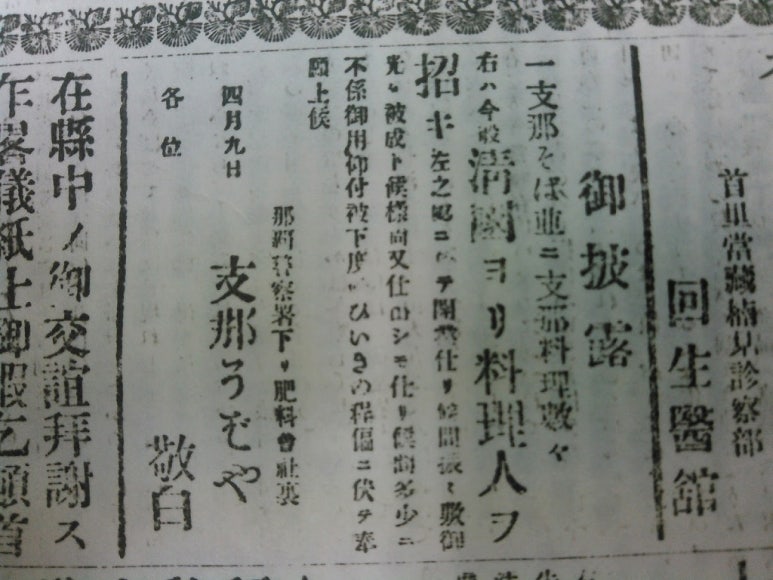 首里當藏楠見診察部
回生醫館
御披露
一支那そば並ニ支那料理数々
右ハ今般清國ヨリ料理人ヲ
招キ左之処ニ於テ開業仕リ候間振々敷御
光 被成下候様尚又仕出シモ仕リ候間多少ニ
不係御用仰付被下度 ひいきの程偏ニ伏テ奉
願上候
四月九日
那覇警察署下リ肥料會社裏
支那うどんや
各位
敬白
在縣中ノ御交誼拝謝ス
乍畧儀紙上御暇乞頓首